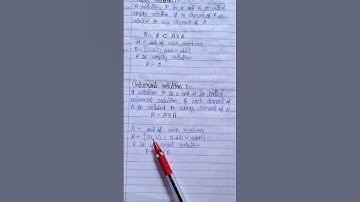 A relation R in a set A is called
empty relation, if no element of A is
related to any element of A
R = ϕ ⊂ A×A
A = set of even numbers
R =
R is empty relation
Universal relation :-
A relation R in a set A is called
universal relation, if each element of
A is related to every element of A
R = A×A
A = set of even numbers
R = {(a, b) : a+b = even}
R is universal relation